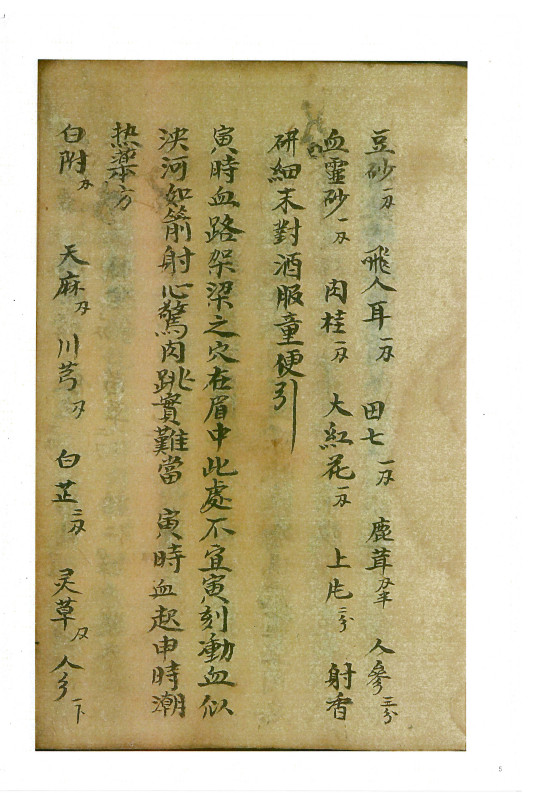 豆砂一刄 飛人耳一刄 田七一刄 鹿茸刄半 人參三分
血靈砂一刄 肉桂一刄 大紅花一刄 上片三分 射香
研細末對酒服童便引
寅時血路架梁之穴在眉中此處不宜寅刻動血似
決河如箭射心驚肉跳實難當 寅時血起申時潮
热藥方
白附刄 天麻刄 川芎刄 白芷二刄 灵草刄 人
5